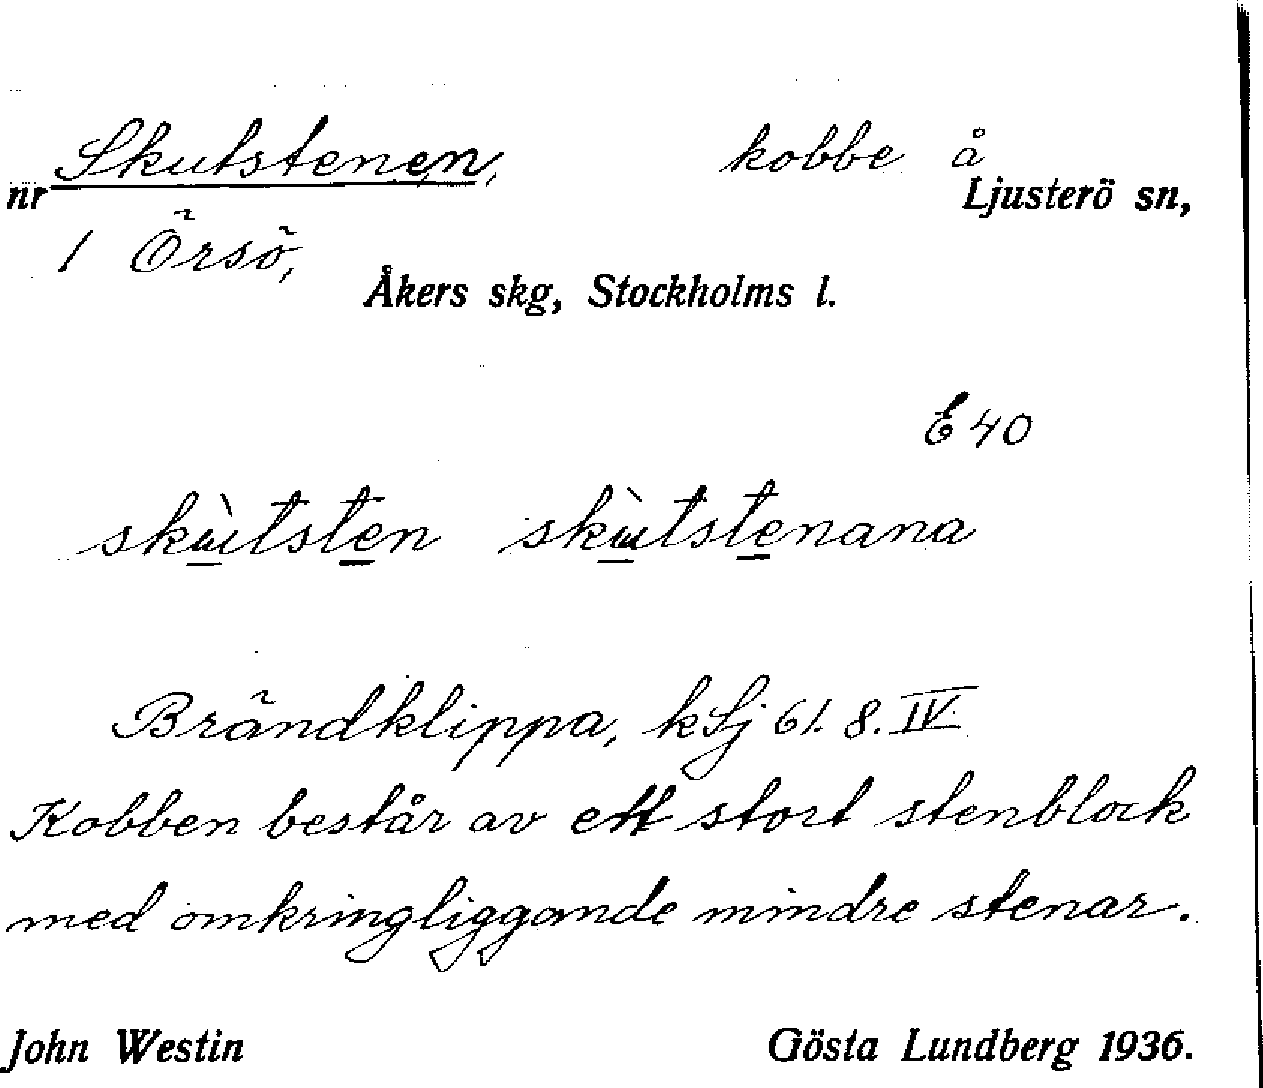 Skutstenen, kobbe å
nr Ljusterö sn,
1 Örsö,
Åkers skg, Stockholms l.
E 40
skùtsten skùtstenana
Brändklippa, kSj 61. 8. IV.
Kobben består av ett stort stenblock
med omkringliggande mindre stenar.
John Westin Gösta Lundberg 1936.